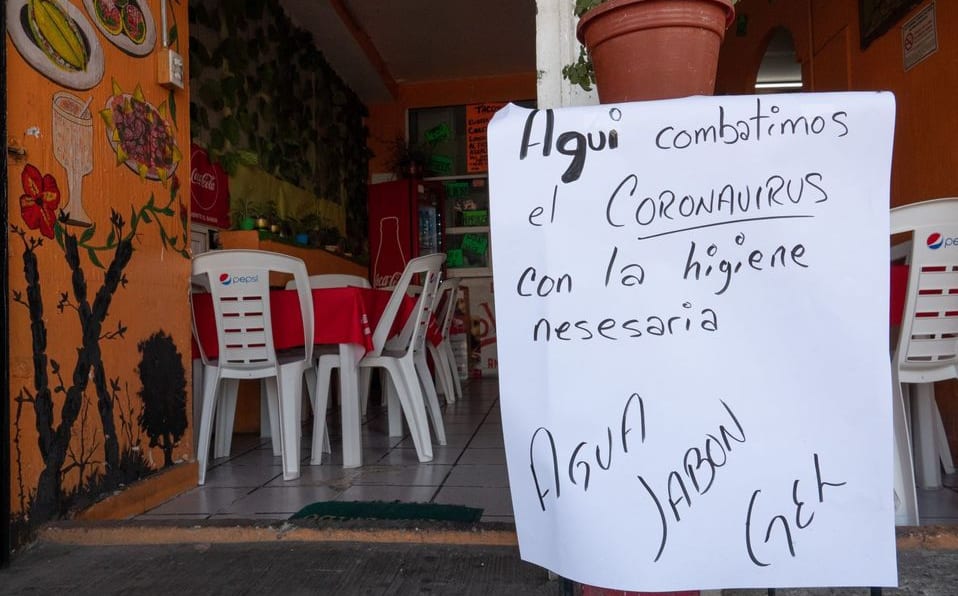 Aqui combatimos
el CORONAVIRUS
con la higiene
nesesaria
AGUA
JABON
GEL
pepsi
Coca-Cola
TACOS